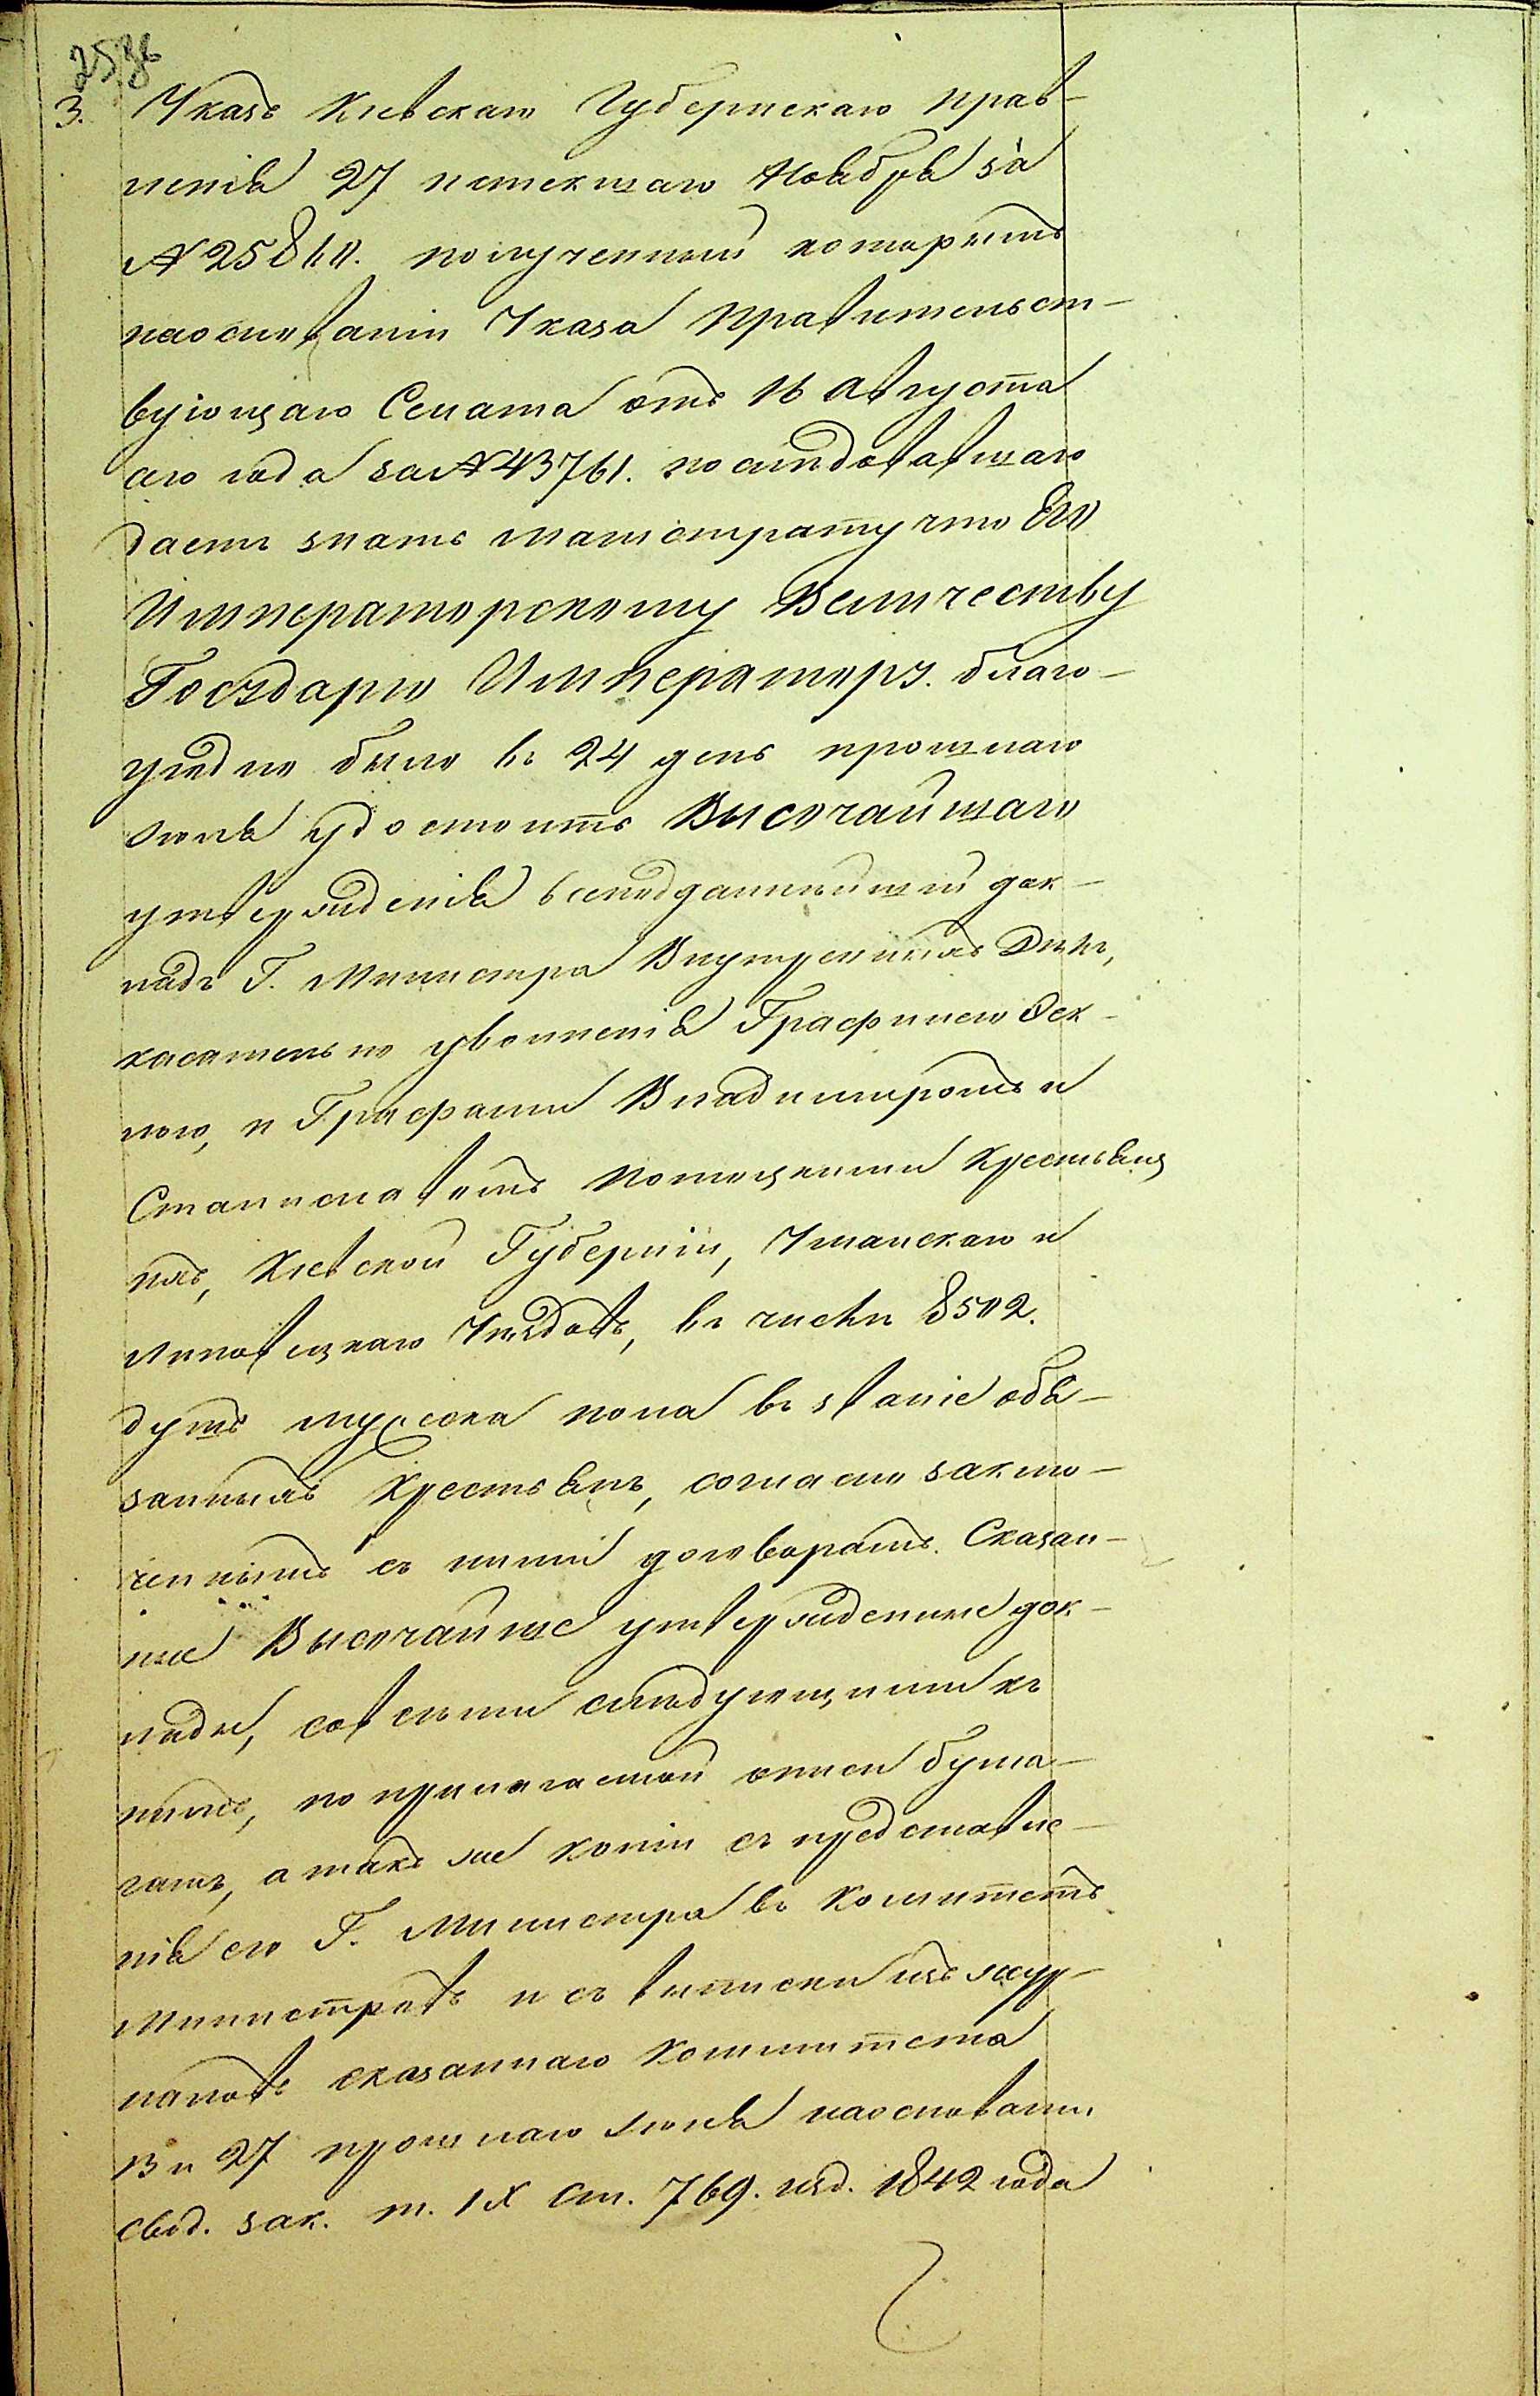 3. Указъ Кіевскаго Губернскаго Прав-
ленія 27 истекшаго Ноября за
№ 25810. полученный которымъ
на основаніи Указа Правительст-
вующаго Сената отъ 16 Августа
его года за № 43761. последовавшаго
даетъ знать магистрату что Его
Императорскому Величеству
Государю Императору. благо-
угодно было въ 24 день прошлаго
Іюня удостоить Высочайшаго
утвержденія всеподданнейшій док-
ладъ Г. Министра Внутреннихъ Делъ,
касательно уволненія Графинею Фек-
лою, и Графами Владимиромъ и
Станиславомъ Потоцкими Крестьян
ихъ, Кіевской Губерніи, Уманскаго и
Липовецкаго Уездовъ, въ числе 8502.
душъ мужеска пола въ званіе обя-
занныхъ Крестьянъ, согласно заклю-
ченнымъ съ ними договорамъ. Сказан-
ные Высочайше утвержденные док-
лады, со всеми следующими къ
нимъ, по прилагаемой описи бума-
гамъ, а такъ же копіи съ представле-
нія его Г. Министра въ Комитетъ
Министровъ и съ выписки изъ жур-
наловъ сказаннаго Комитета
13 и 27 прошлаго Іюня на основаніи
свод. зак. т. IX ст. 769. изд. 1842 года